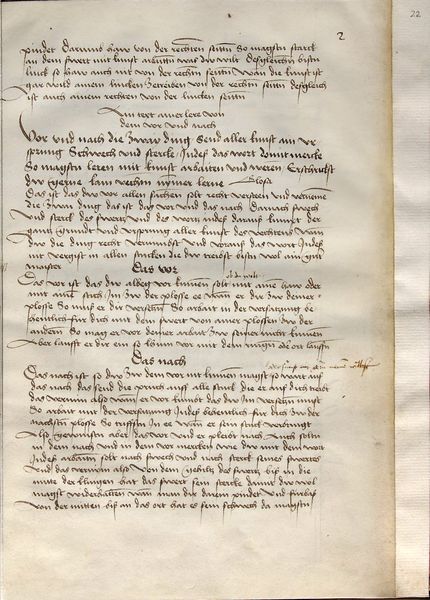 2
22
pindet darumb haw von der rechten seitten So magstu starck
an dem swert mit kunst arbeitten was dw wilt desgleichen bistu
linck so haw auch nit von der rechten seitten wan die kunst ist
gar wild einem lincken zetreiben von der rechten seitten desgleich
ist auch einem rechten von der lincken seitten
Ain text einer lere von
dem vor vnd nach
Vor vnd nach die zway ding Send aller kunst ain vr
sprung Schwech vnd sterck Indes das wort domit merck
So magstu leren mit kunst arbaiten vnd weren Erschrickst
dw gerne kain vechten nymer lerne Glosa
Das ist das dw vor allen sachen solt recht versteen vnd verneme
die zway ding das ist das vor vnd das nach Darnach swech
vnd sterck des swertz vnd des wortz indes darauß kumpt der
gantz grundt vnd vrsprung aller kunst des vechtens Wan
dw die ding recht vernimbst vnd voraus das wort Indes
nit vergist in allen stucken die dw treibst bistu wol ain gut
maister
Das vor
Das vor ist das dw albeg vor kumen solt mit aim haw oder
mit aim stich Im dw der plosse ee wann er dir zw deiner
plosse So muß er dir versetzen So arbait in der versatzung be
hentlich für dich mit dem swert von ainer plossen zw der
andern So mag er vor deiner arbait zw seiner nicht kumen
Aber laufft er dir ein so kum vor mit dem ringen
Das nach
Das nach ist so dw zw dem vor nit kumen magst so wart auf
das nach das send die prüch auff alle stuck die er auf dich treibt
das vernim also wann er vor kumbt das dw Im versetzen must
So arbait mit der versatzung Indes behentlich für dich zw der
nächsten plosse So triffstu In ee wann er sein stuck verbringt
Also gewinstu aber das vor vnd er pleibt nach Auch soltu
In dem nach vnd in dem vor mercken wie dw mit dem wort
Indes arbaiten solt nach swech vnd nach sterck seines swertes
Vnd das vernim also Von dem gehiltz des swertz biß in die
mitte der klingen hat das swert sein stercke damit dw wol
magst widerhalten wan man dir daran pindet Vnd fürbas
von der mitten biß an das ort hat es sein swech da magstu